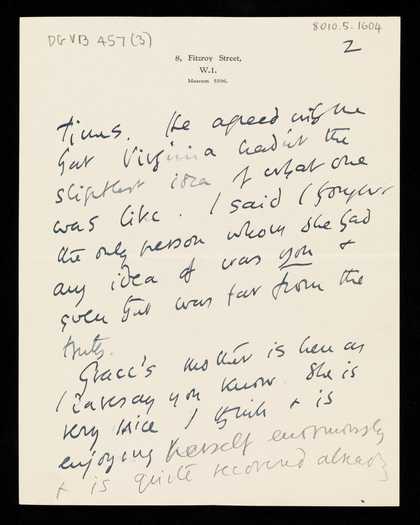 DGVB A57(3)
8010.5.1604
2
8, Fitzroy Street,
W.1.
Museum
times. He agreed with me
that Virginia hadn't the
slightest idea of what one
was like. I said I
the only person whom she had
any idea of was you &
even that was far from the
truth.
Grace's mother is here as
I daresay you know. She is
very nice I think & is
enjoying herself enormously
& is quite recovered already